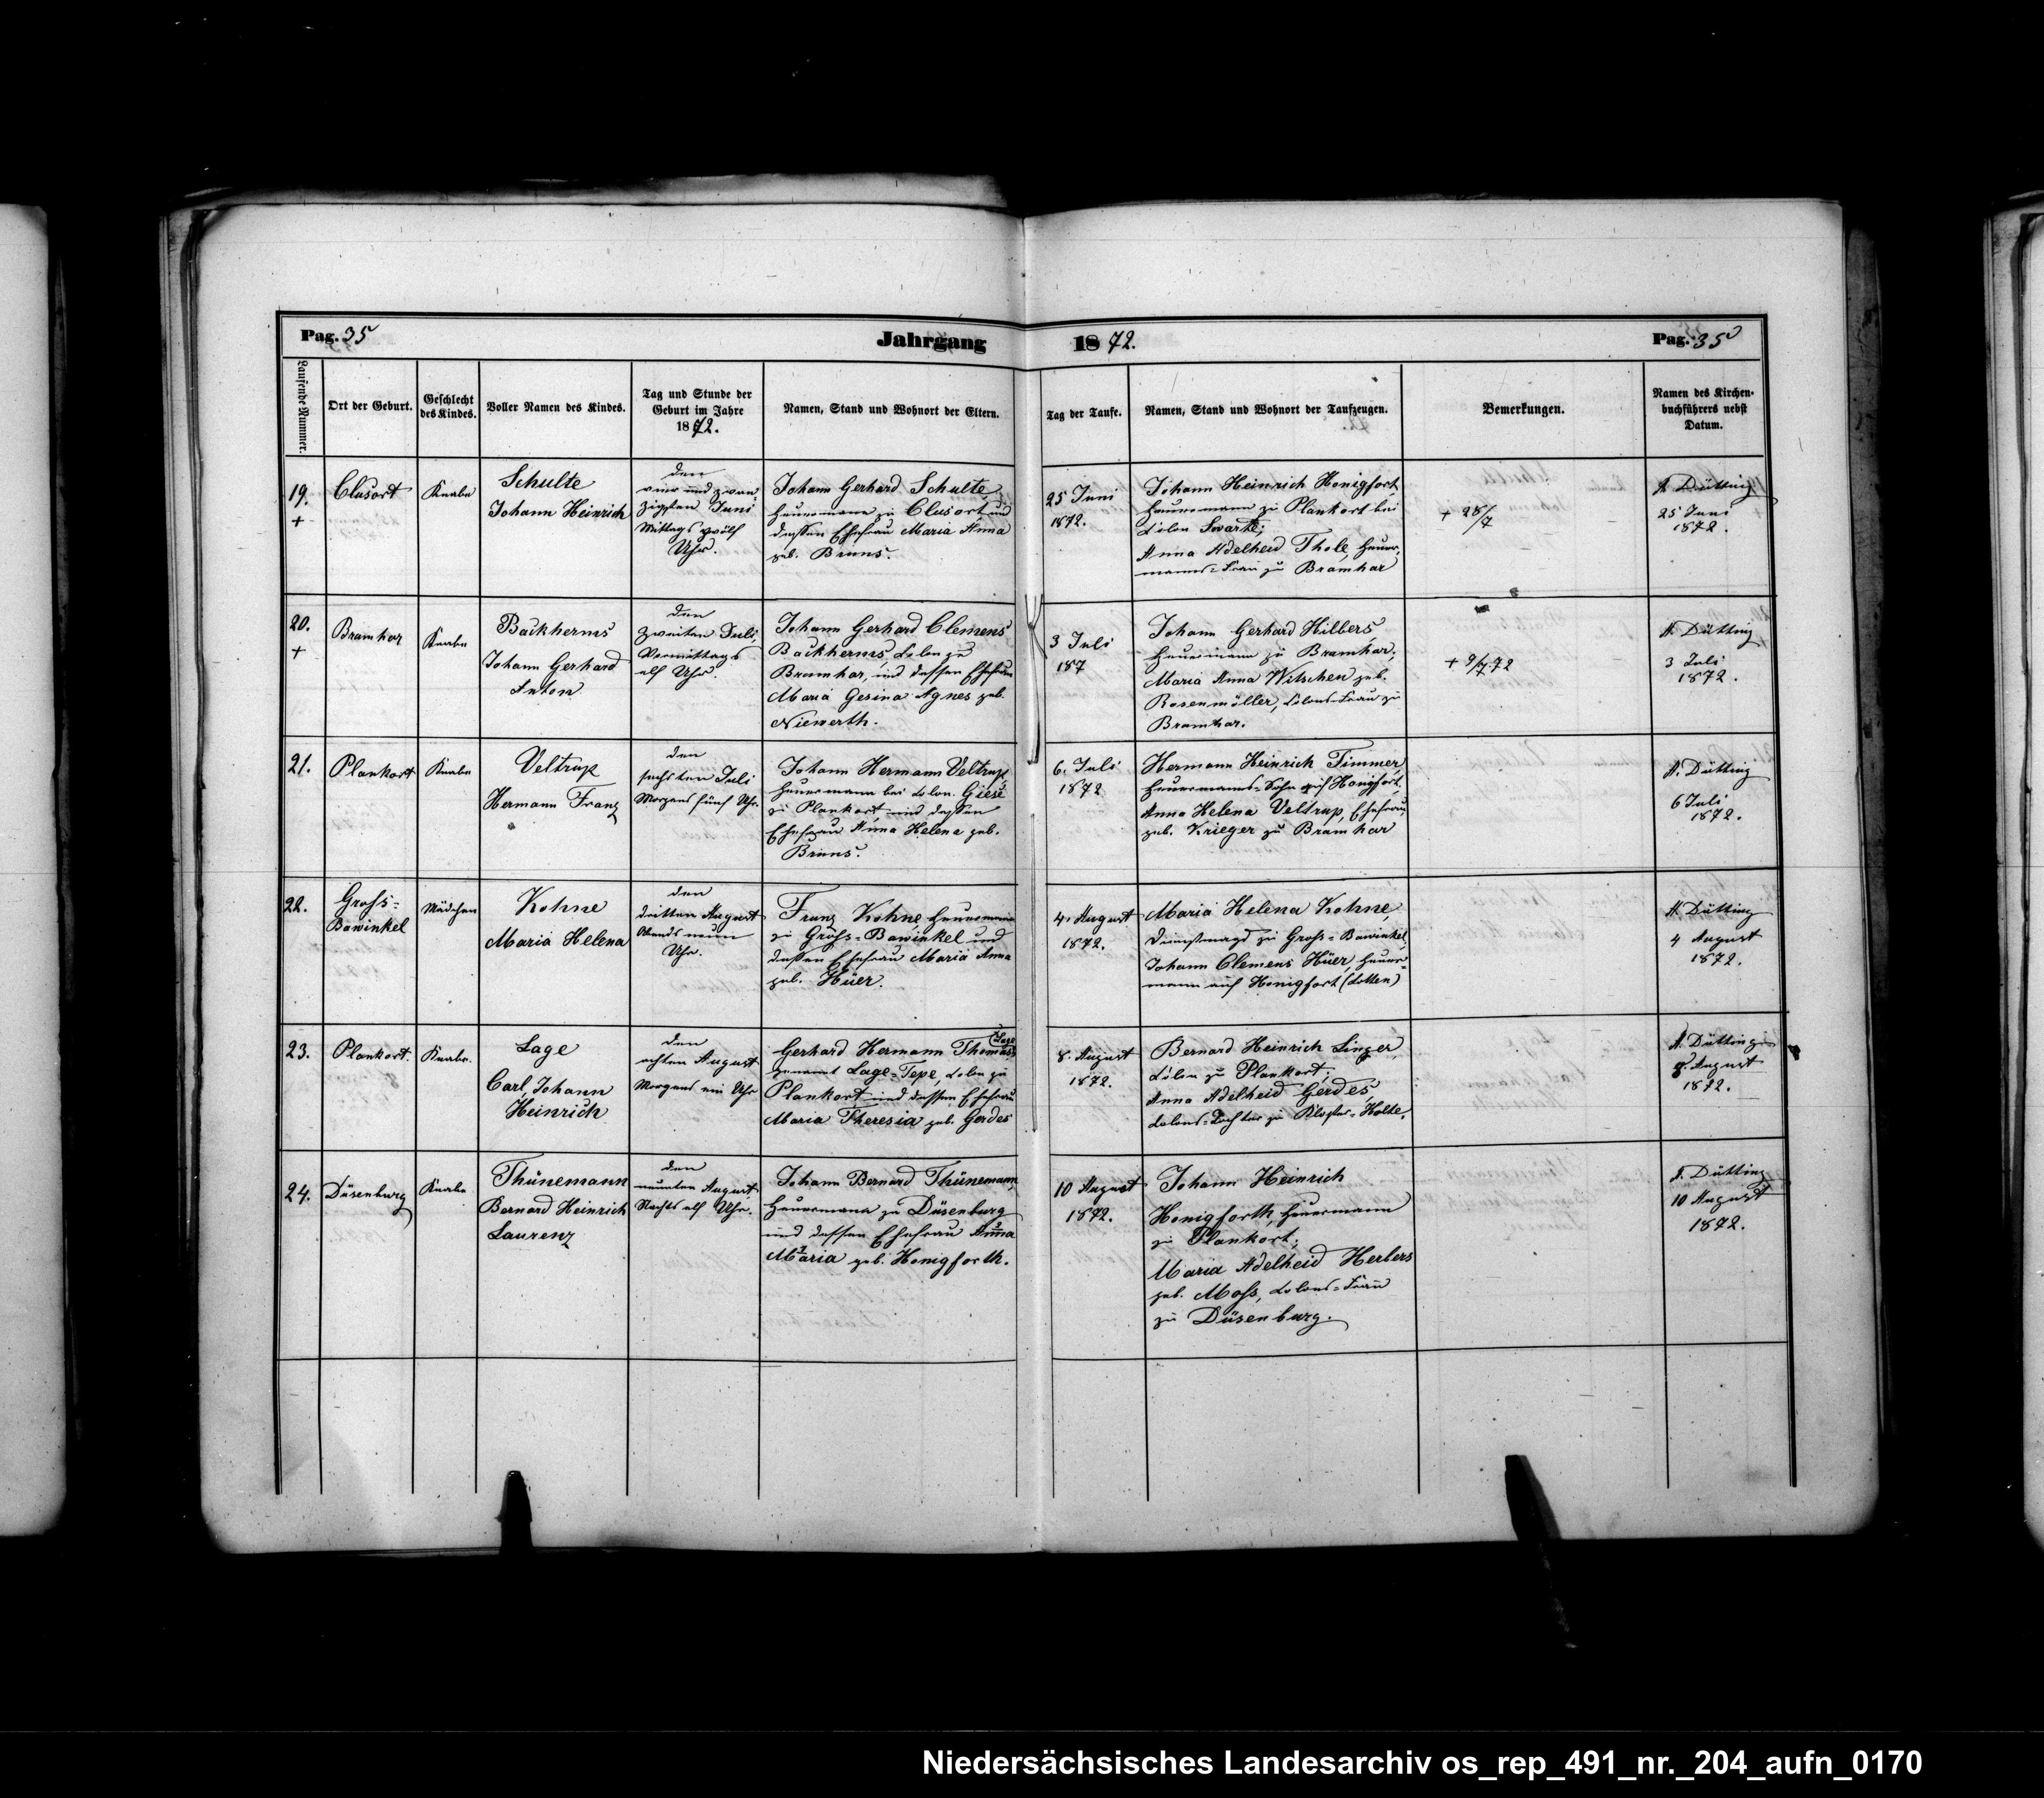 Pag. 35
Jahrgang
1872.
Pag. 35
Laufende Nummer.
Ort der Geburt.
Geschlecht
des Kindes.
Voller Namen des Kindes.
Tag und Stunde der
Geburt im Jahre
1872.
Namen, Stand und Wohnort der Eltern.
Tag der Taufe.
Namen, Stand und Wohnort der Taufzeugen.
Bemerkungen.
Namen des Kirchen-
buchführers nebst
Datum.
19.
+
Clusort
Knabe
Schulte
Johann Heinrich
den
vier und zwan-
zigsten Juni
Mittags zwölf
Uhr.
Johann Gerhard Schulte,
Heuermann zu Clusort und
dessen Ehefrau Maria Anna
geb. Bruns.
25 Juni
1872.
Johann Heinrich Honigfort,
Heuermann zu Plankort bei
Colon Swarte;
Anna Adelheid Thole, Heuer-
manns-Frau zu Bramhar
+ 28/7
A. Dütting
25 Juni
1872.
20.
+
Bramhar
Knabe
Backherms
Johann Gerhard
Anton
den
zweiten Juli,
Vormittags
elf Uhr.
Johann Gerhard Clemens
Backherms, Colon zu
Bramhar, und dessen Ehefrau
Maria Gesina Agnes geb.
Niewerth.
3 Juli
187
Johann Gerhard Hilbers,
Heuermann zu Bramhar;
Maria Anna Witschen geb.
Rosenmöller, Colons-Frau zu
Bramhar.
+ 9/7 72
A. Dütting
3 Juli
1872.
21.
Plankort
Knabe
Veltrup
Hermann Franz
den
sechsten Juli
Morgens fünf Uhr.
Johann Hermann Veltrup
Heuermann bei Colon Giese
zu Plankort und dessen
Ehefrau Anna Helena geb.
Bruns.
6. Juli
1872
Hermann Heinrich Timmer,
Heuermanns-Sohn auf Honigfort,
Anna Helena Veltrup, Ehefrau,
geb. Krieger zu Bramhar
A. Dütting
6 Juli
1872.
22.
Gross-
Bawinkel
Mädchen
Kohne
Maria Helena
den
dritten August
Abends neun
Uhr.
Franz Kohne Heuermann
zu Gross-Bawinkel und
dessen Ehefrau Maria Anna
geb. Hüer.
4. August
1872.
Maria Helena Kohne,
Dienstmagd zu Gross-Bawinkel,
Johann Clemens Hüer, Heuer-
mann auf Honigfort (Lotten)
A. Dütting
4 August
1872.
23.
Plankort.
Knabe.
Lage
Carl, Johann
Heinrich
den
achten August
Morgens ein Uhr
Lage
Gerhard Hermann Thomas
genannt Lage-Tepe, Colon zu
Plankort und dessen Ehefrau
Maria Theresia geb. Gerdes
8. August
1872.
Bernard Heinrich Linger,
Colon zu Plankort;
Anna Adelheid Gerdes,
Colons-Tochter zu Kloster-Holte.
A. Dütting
8. August
1872.
24.
Düsenburg
Knabe
Thünemann
Bernard Heinrich
Laurenz
den
neunten August
Nachts elf Uhr.
Johann Bernard Thünemann,
Heuermann zu Düsenburg
und dessen Ehefrau Anna
Maria geb. Honigforth.
10 August
1872.
Johann Heinrich
Honigforth, Heuermann
zu Plankort;
Maria Adelheid Herbers
geb. Moss, Colons-Frau
zu Düsenburg.
A. Dütting
10 August
1872.
Niedersächsisches Landesarchiv os_rep_491_nr._204_aufn_0170